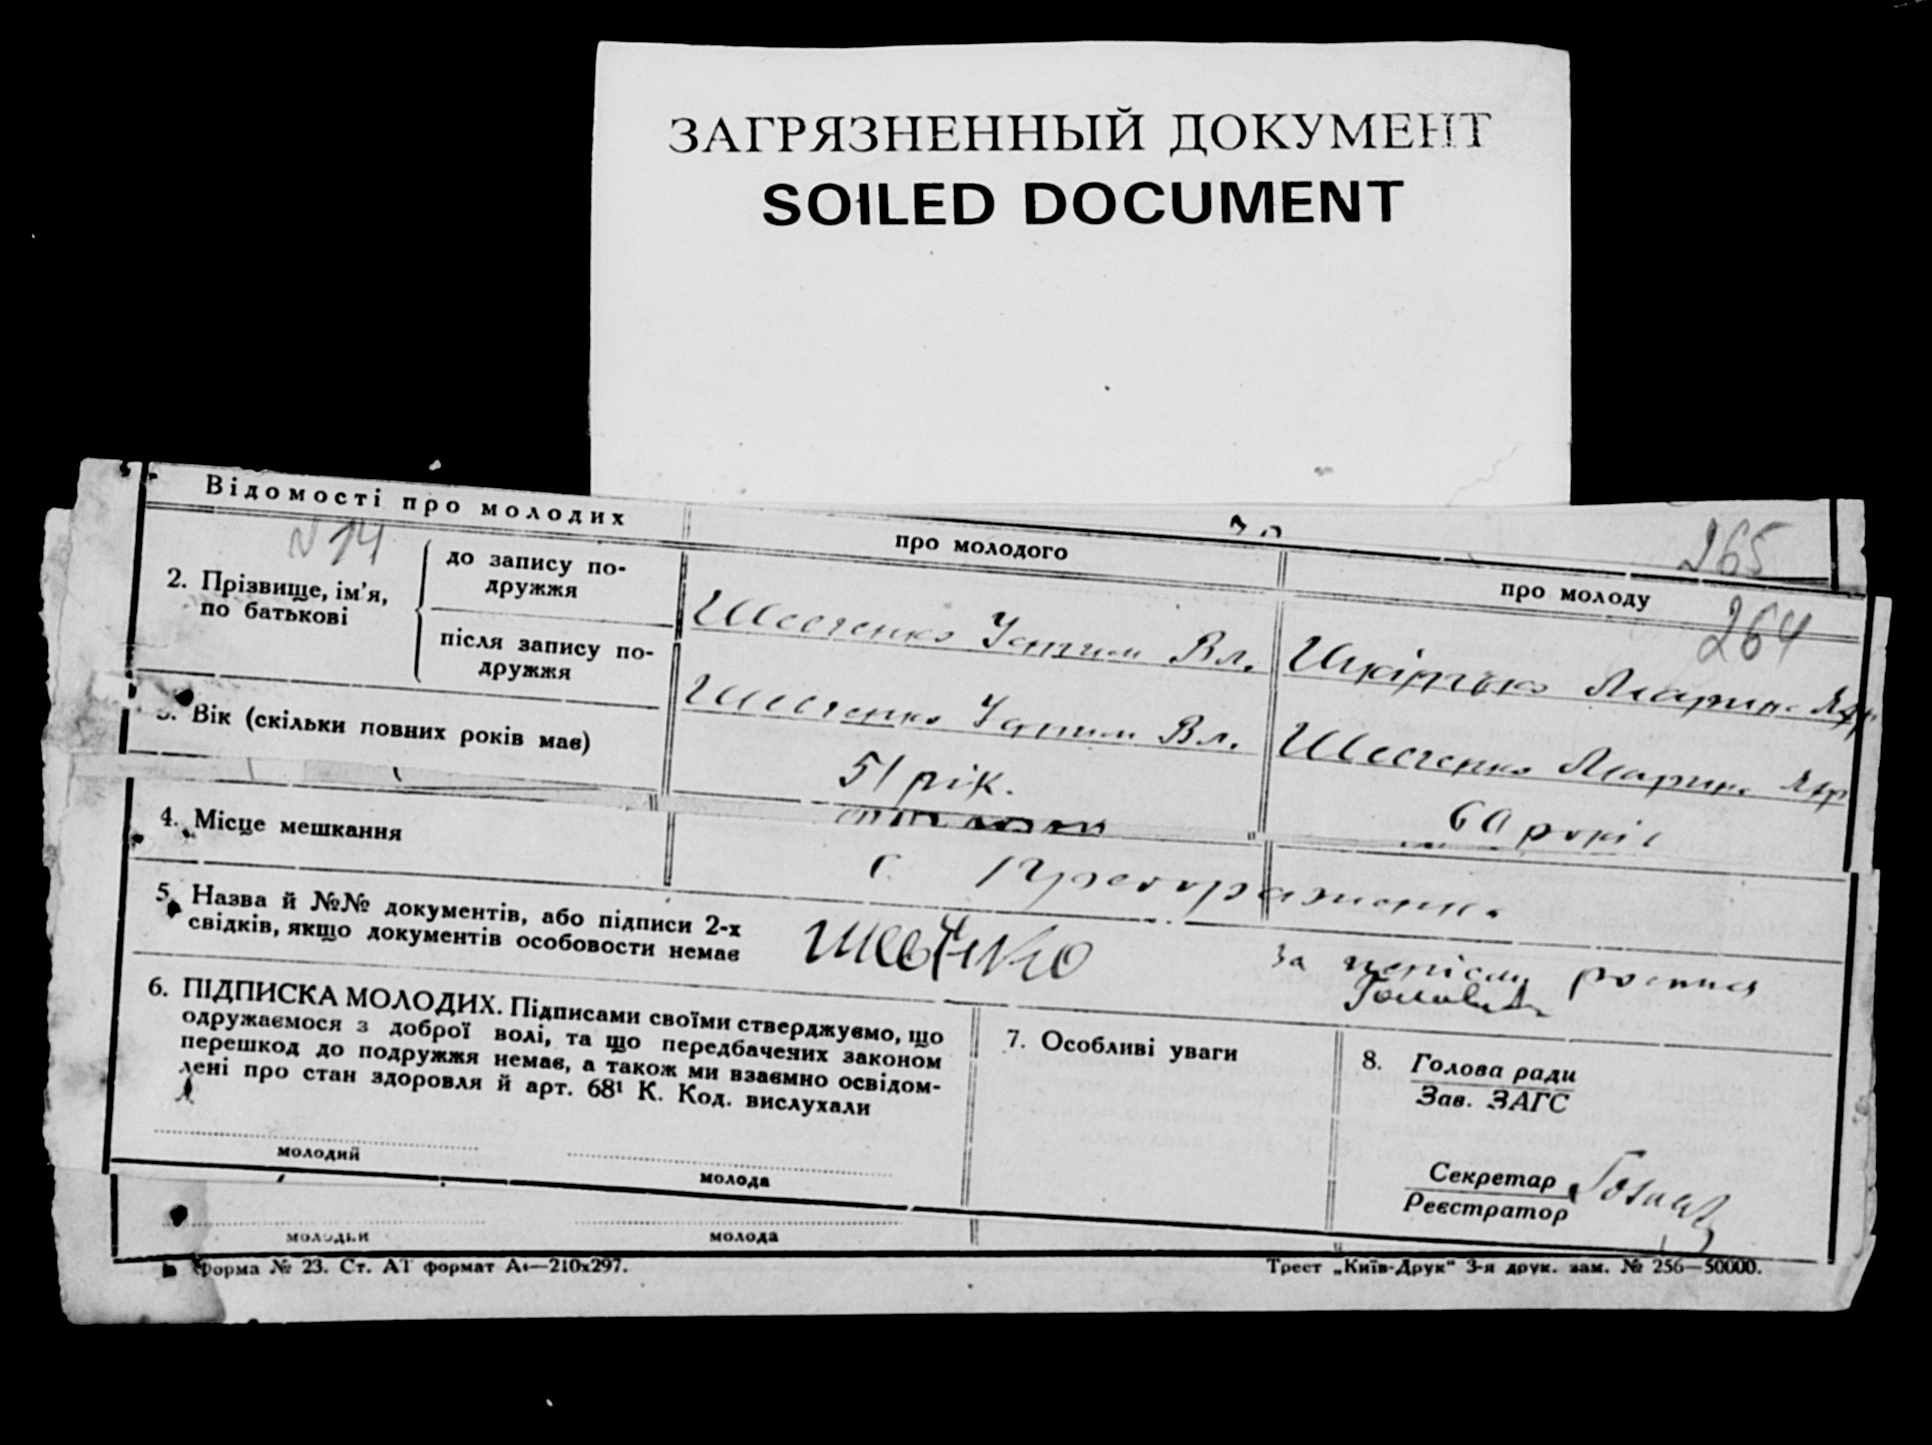 ЗАГРЯЗНЕННЫЙ ДОКУМЕНТ
SOILED DOCUMENT
Відомості про молодих
про молодого
про молоду
265
264
N 14
2. Прізвище, ім'я,
по батькові
до запису по-
дружжя
Шевченко Вл.
Марина
після запису по-
дружжя
Шевченко Вл.
Шевченко Марина
3. Вік (скільки повних років має)
51 рік.
60 років
4. Місце мешкання
с.
5. Назва й №№ документів, або підписи 2-х
свідків, якщо документів особовости немає
за
6. ПІДПИСКА МОЛОДИХ. Підписами своїми стверджуємо, що
одружаємося з доброї волі, та що передбачених законом
перешкод до подружжя немає, а також ми взаємно освідом-
лені про стан здоровля й арт. 68¹ К. Код. вислухали
молодий
молода
7. Особливі уваги
8. Голова ради
Зав. ЗАГС
Секретар
Реєстратор
молодий
молода
Форма № 23. Ст. АТ формат А4—210х297.
Трест „Київ-Друк" 3-я друк. зам. № 256—50000.